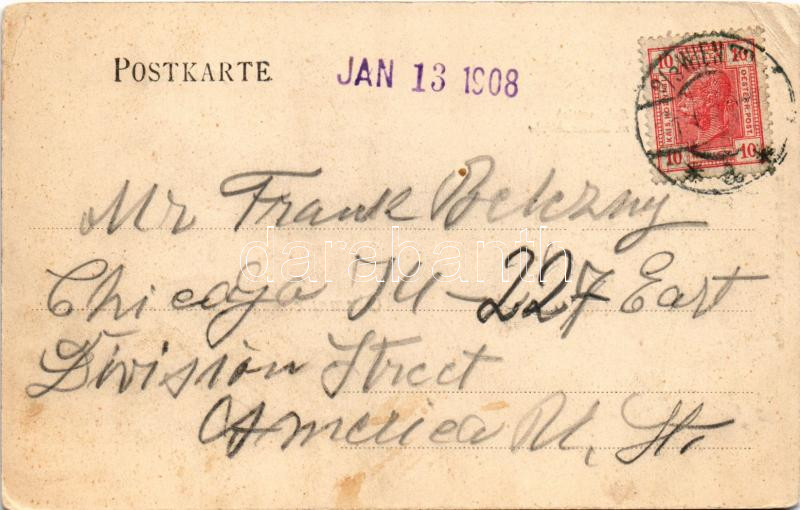 POSTKARTE
JAN 13 1908
10 10
WIEN
OESTERR. POST
10 10
Mr Frank Belczny
Chicago Ill - 227 East
Division Street
America U. St.
darabanth